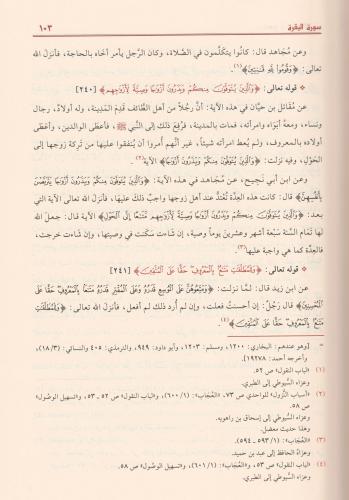 سورة البقرة
١٠٣
وعن مُجاهد قال: كانُوا يتكلَّمون في الصَّلاة، وكان الرَّجل يأمر أخاه بالحاجة، فأنزَل الله
تعالى: ﴿وَقُومُوا لِلَّهِ قَانِتِينَ﴾(١).
❖ قوله تعالى: ﴿وَالَّذِينَ يُتَوَفَّوْنَ مِنكُمْ وَيَذَرُونَ أَزْوَاجًا وَصِيَّةً لِأَزْوَاجِهِم﴾ [٢٤٠]
عن مُقاتل بن حيَّان في هذه الآية: أنَّ رجلاً من أهل الطَّائف قَدِمَ المَدِينة، وله أولادٌ، رجال
ونساء، ومعهُ أبَواه وامرأته، فمات بالمدينة، فرُفِعَ ذلك إلى النَّبي ﷺ، فأعطى الوالدين، وأعطى
أولاده بالمعروف، ولم يُعط امرأته شيئاً، غير أنَّهم أُمروا أن يُنفقوا عليها من تَركة زوجها إلى
الحَوْلِ، وفيه نزلت: ﴿وَالَّذِينَ يُتَوَفَّوْنَ مِنكُمْ وَيَذَرُونَ أَزْوَاجًا﴾ الآية(٢).
وعن ابن أبي نَجيح، عن مُجاهد في هذه الآية: ﴿وَالَّذِينَ يُتَوَفَّوْنَ مِنكُمْ وَيَذَرُونَ أَزْوَاجًا يَتَرَبَّصْنَ
بِأَنفُسِهِنَّ﴾ قال: كانت هذه العِدَّة تُعْتَدُّ عند أهل زوجها واجبٌ ذلك عليها، فأنزَل الله تعالى الآية التي
بعد: ﴿وَالَّذِينَ يُتَوَفَّوْنَ مِنكُمْ وَيَذَرُونَ أَزْوَاجًا وَصِيَّةً لِأَزْوَاجِهِم مَّتَاعًا إِلَى الْحَوْلِ﴾ الآية قال: جعلَ الله
لها تمام السَّنة سَبعة أشهر وعشرين يوماً وصية، إن شاءت سكنت في وصيتها، وإن شاءت خرجت،
فالعِدَّة كما هي واجبة عليها(٣).
❖ قوله تعالى: ﴿وَلِلْمُطَلَّقَاتِ مَتَاعٌ بِالْمَعْرُوفِ حَقًّا عَلَى الْمُتَّقِينَ﴾ [٢٤١]
عن ابن زيد قال: لمَّا نزلت: ﴿وَمَتِّعُوهُنَّ عَلَى الْمُوسِعِ قَدَرُهُ وَعَلَى الْمُقْتِرِ قَدَرُهُ مَتَاعًا بِالْمَعْرُوفِ حَقًّا عَلَى
الْمُحْسِنِينَ﴾ قال رَجُلٌ: إن أحسنتُ فعلت، وإن لم أُرد ذلك لم أفعل، فأنزَل الله تعالى: ﴿وَلِلْمُطَلَّقَاتِ
مَتَاعٌ بِالْمَعْرُوفِ حَقًّا عَلَى الْمُتَّقِينَ﴾(٤).
= [وهو عندهم: البخاري: ١٢٠٠، ومسلم: ١٢٠٣، وأبو داود: ٩٤٩، والترمذي: ٤٠٥ والنسائي: (١٨/٣)،
وأخرجه أحمد: ١٩٢٧٨].
(١) «لباب النقول» ص ٥٢.
وعزاه السُّيوطي إلى الطبري.
(٢) «أسباب النُّزول» للواحدي ص ٧٣، «العُجَاب»: (٦٠٠/١)، «لباب النقول» ص ٥٢ - ٥٣، و«تسهيل الوصُول»
ص ٥٨.
وعزاه السيوطي إلى إسحاق بن راهويه.
وهذا حديث معضل.
(٣) «العُجَاب»: (٥٩٣/١ - ٥٩٤).
وعزاهُ الحافظ إلى عبد بن حميد.
(٤) «لباب النقول» ص ٥٣، و«العُجَاب»: (٦٠١/١)، و«تسهيل الوصُول» ص ٥٨.
وعزاه السُّيوطي إلى الطبري.